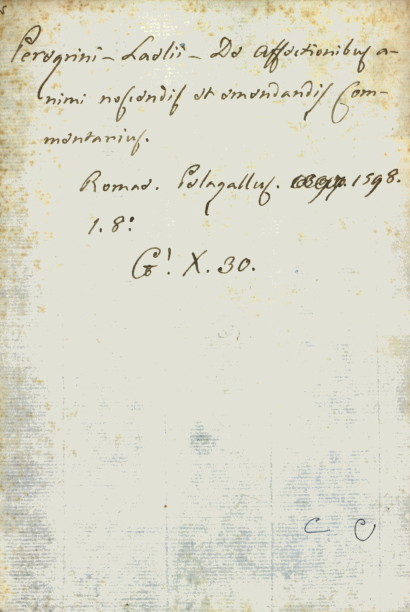 Peregrini - Laelii - De affectionibus a-
nimi noscendis et emendandis Com-
mentarius.
Romae. Pelagallus. 1598.
1. 8º
X. 30.
C C